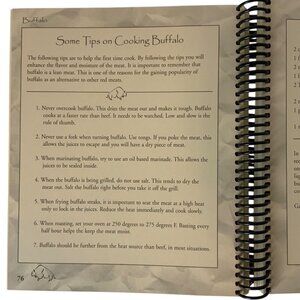 Buffalo
Some Tips on Cooking Buffalo
The following tips are to help the first time cook. By following the tips you will
enhance the flavor and moisture of the meat. It is important to remember that
buffalo is a lean meat. This is one of the reasons for the gaining popularity of
buffalo as an alternative to other red meats.
1. Never overcook buffalo. This dries the meat out and makes it tough. Buffalo
cooks at a faster rate than beef. It needs to be watched. Low and slow is the
rule of thumb.
2. Never use a fork when turning buffalo. Use tongs. If you poke the meat, this
allows the juices to escape and you will have a dry piece of meat.
3. When marinating buffalo, try to use an oil based marinade. This allows the
juices to be sealed inside.
4. When the buffalo is being grilled, do not use salt. This tends to dry the
meat out. Salt the buffalo right before you take it off the grill.
5. When frying buffalo steaks, it is important to seat the meat at a high heat
only to lock in the juices. Reduce the heat immediately and cook slowly.
6. When roasting, set your oven at 250 degrees to 275 degrees F. Basting every
half hour helps the keep the meat moist.
7. Buffalo should be further from the heat source than beef, in most situations.
76